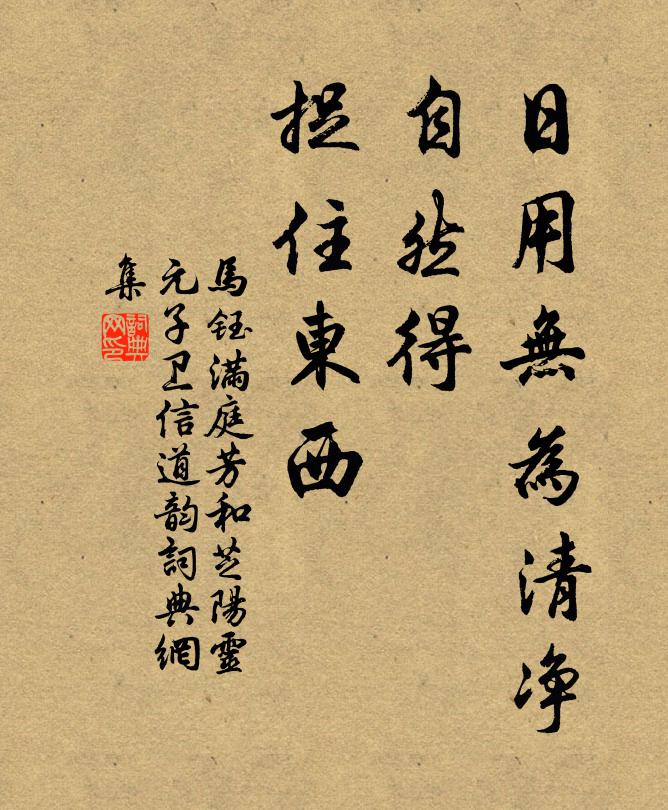 日用無為清净
自然得
捉住東西
馬鈺滿庭芳和芝陽靈
元子卫信道韵詞典網
集
詞典网印